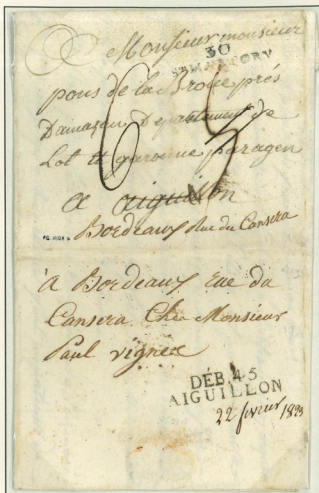 Monsieur monsieur
30
ST
pons de la Broue près
Damazan Departement de
Lot et garonne par agen
a aiguillon
Bordeaux Rue du Cansera
à Bordeaux rue du
Cansera Chez Monsieur
Paul vignes
DEB. 45
AIGUILLON
22 fevrier 1823